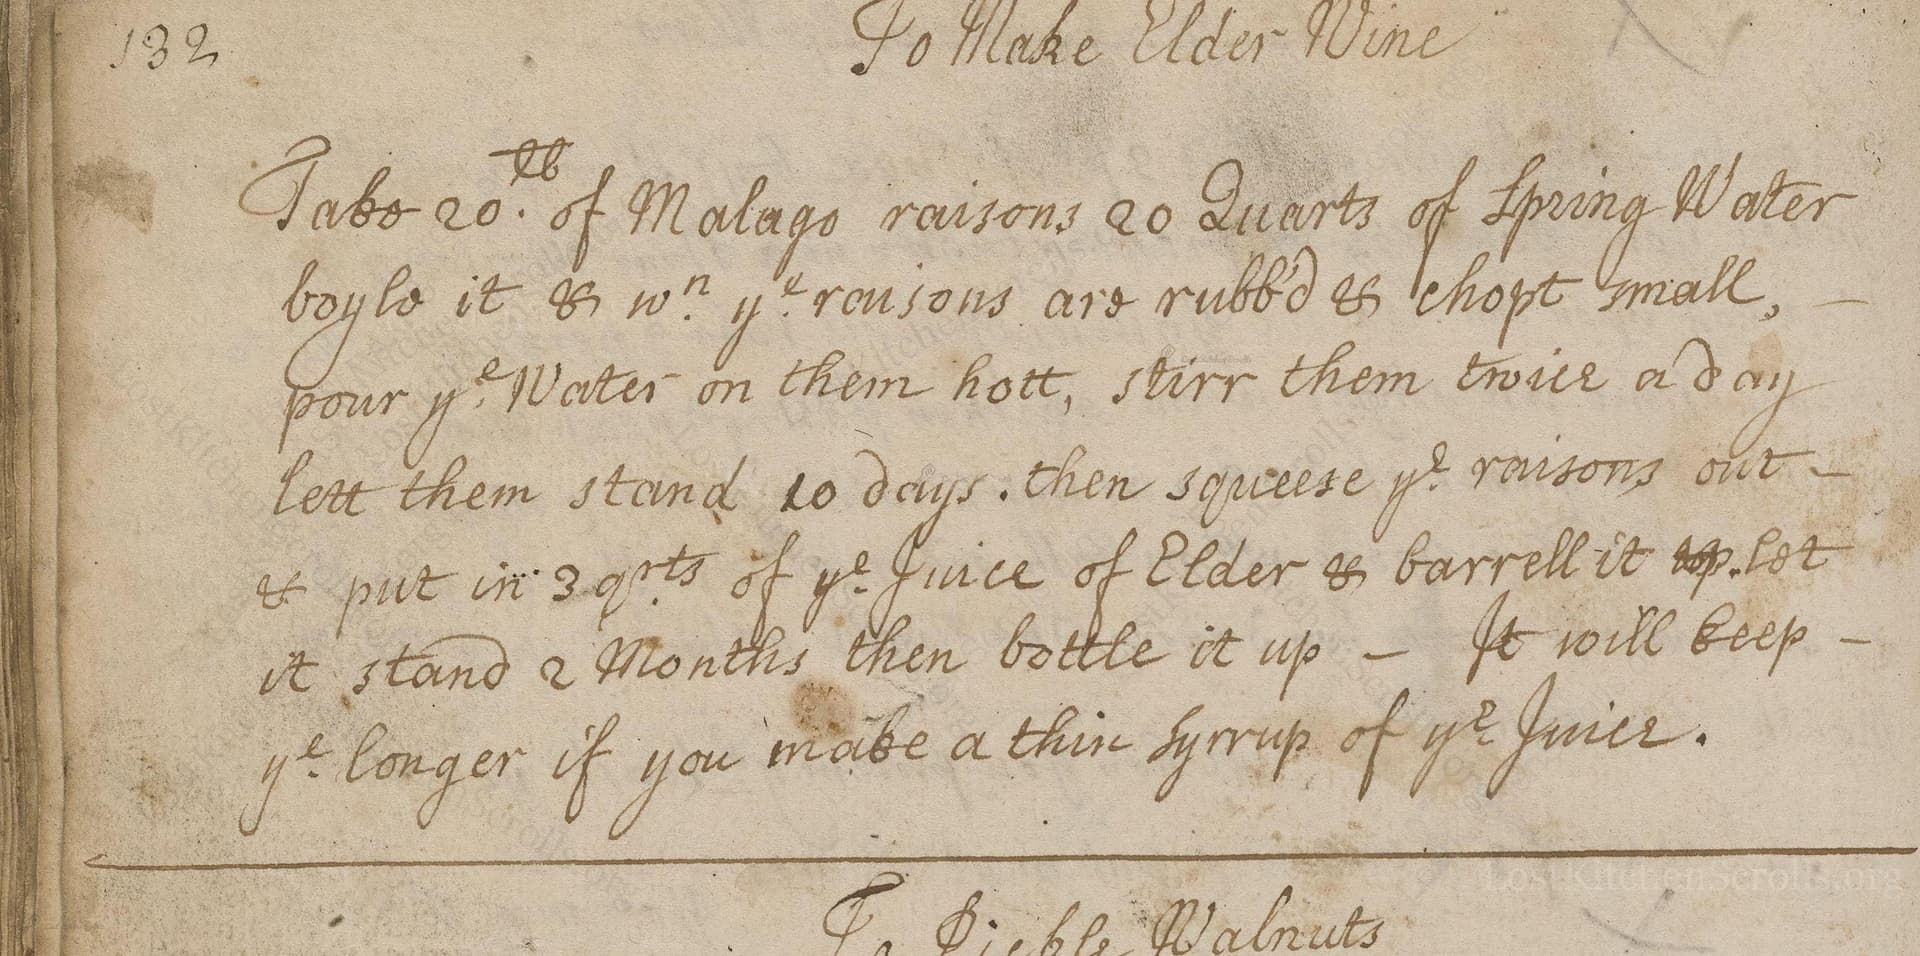 132
To Make Elder Wine
Take 20.lb of Malago raisons 20 Quarts of Spring Water
boyle it & wn. ye. raisons are rubb'd & chopt small, –
pour ye. Water on them hott, stirr them twice a day
lett them stand 10 days. then squeese ye. raisons out –
& put in 3 qrts. of ye. Juice of Elder & barrell it up. let
it stand 2 Months then bottle it up – It will keep –
ye. longer if you make a thin Syrrup of ye. Juice.
LostKitchenScrolls.org
To Pickle Walnuts